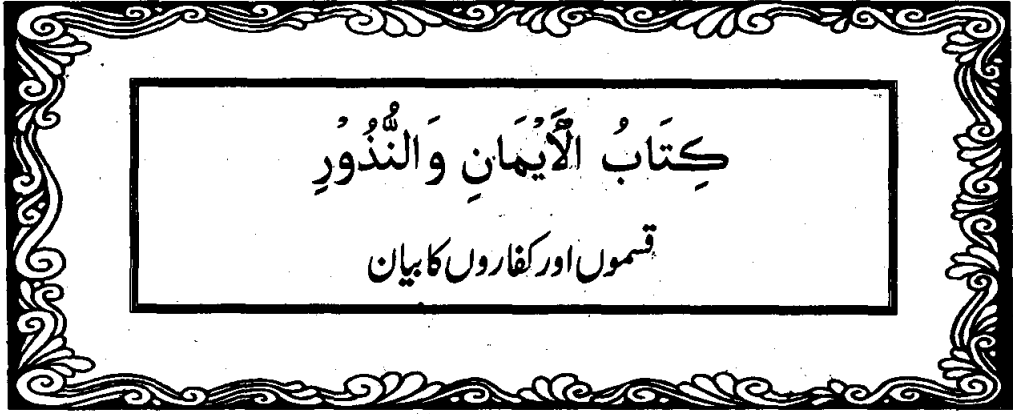 كِتَابُ الْأَيْمَانِ وَالنُّذُوْرِ
قسموں اور کفاروں کا بیان